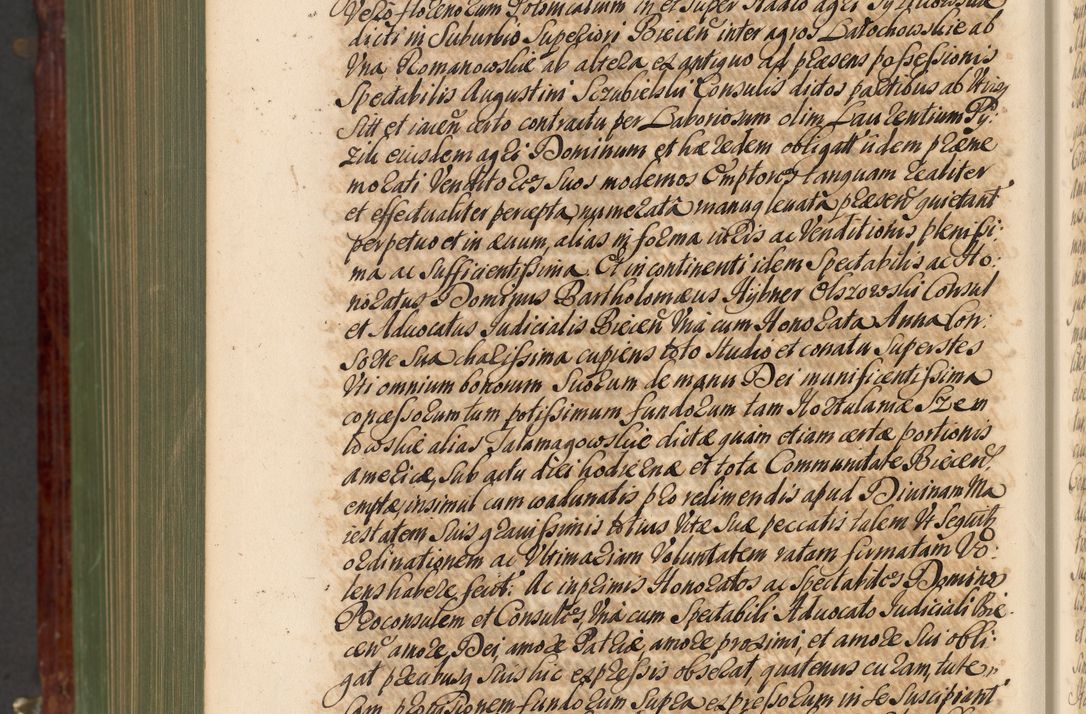 Vero florenorum Polonicalium in et super Stadio agri
dicti in Suburbio Superiori Biecen inter agros Latochowskie ab
Vna Romanowskie ab altera ex antiquo ad præsens possessionis
Spectabilis Augustini Sczubielski Consulis dictos partibus ab Vtrinq
Sitt et iacen certo contractu per Laboriosum olim Laurentium Py:
zik eiusdem agri Dominum et hæredem obligatt iidem præme
morati Venditores Suos modernos Emptores tanquam realiter
et effectualiter percepta numerata manuq leuata præsen quietant
perpetuo et in æuum, alias in forma iuris ac Venditionis plenissi:
ma ac sufficientissima. Et in continenti idem Spectabilis ac Ho:
noratus Dominus Bartholomæus Hybner Olszowski Consul
et Aduocatus Iudicialis Biecen Vna cum Honorata Anna Con:
sorte Sua charissima cupiens toto Studio et conatu Superstes
Vti omnium bonorum Suorum de manu Dei munificentissima
concessorum tum potissimum fundorum tam Hortulaniæ Szem
lowskie alias Talamagowskie dictæ quam etiam certæ portionis
americæ, sub actu diei hodiernæ et tota Communitate Biecen
emptæ, insimul cum coadunatis pro redimendis apud Diuinam Ma
iestatem Suis grauissimis totius Vitæ Suæ peccatis talem Vt Sequit
ordinationem ac Vltimariam Voluntatem ratam firmatam Vo:
lens habere fecit: Ac inprimis Honoratos ac Spectabiles Dominos
Proconsulem et Consules, Vna cum Spectabili Aduocato Iudiciali Bie:
cen amore Dei, amore Patriæ, amore proximi, et amore Sui obli:
gat precibusq Suis hic expressis obsecrat, quatenus curam, tute
lam protectionem fundorum Supra expressorum in se Suscipiant